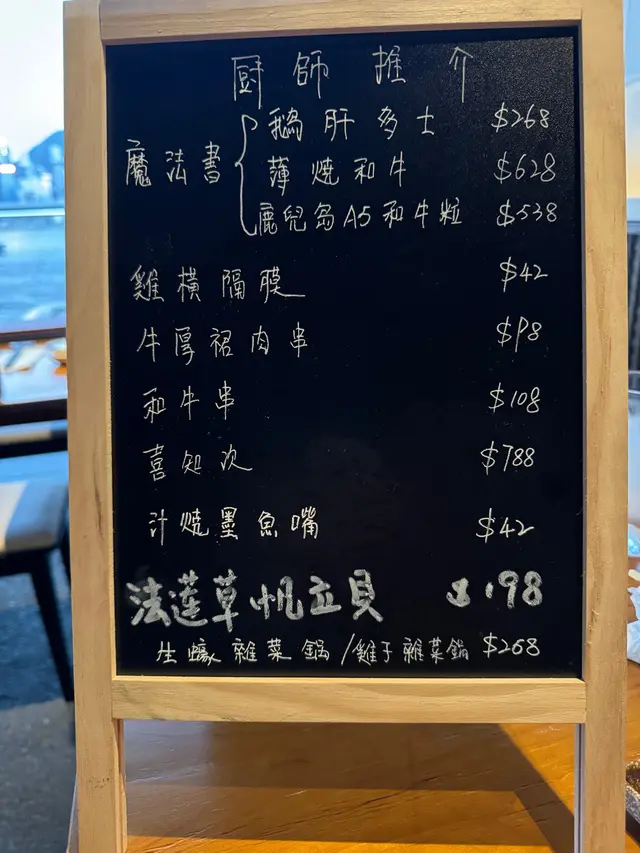 廚師推介
魔法書
鵝肝多士 $268
薄燒和牛 $628
鹿兒島A5和牛粒 $538
雞橫隔膜 $42
牛厚裙肉串 $98
和牛串 $108
喜知次 $788
汁燒墨魚嘴 $42
法蓮草帆立貝 $198
生蠔雜菜鍋/雞子雜菜鍋 $268